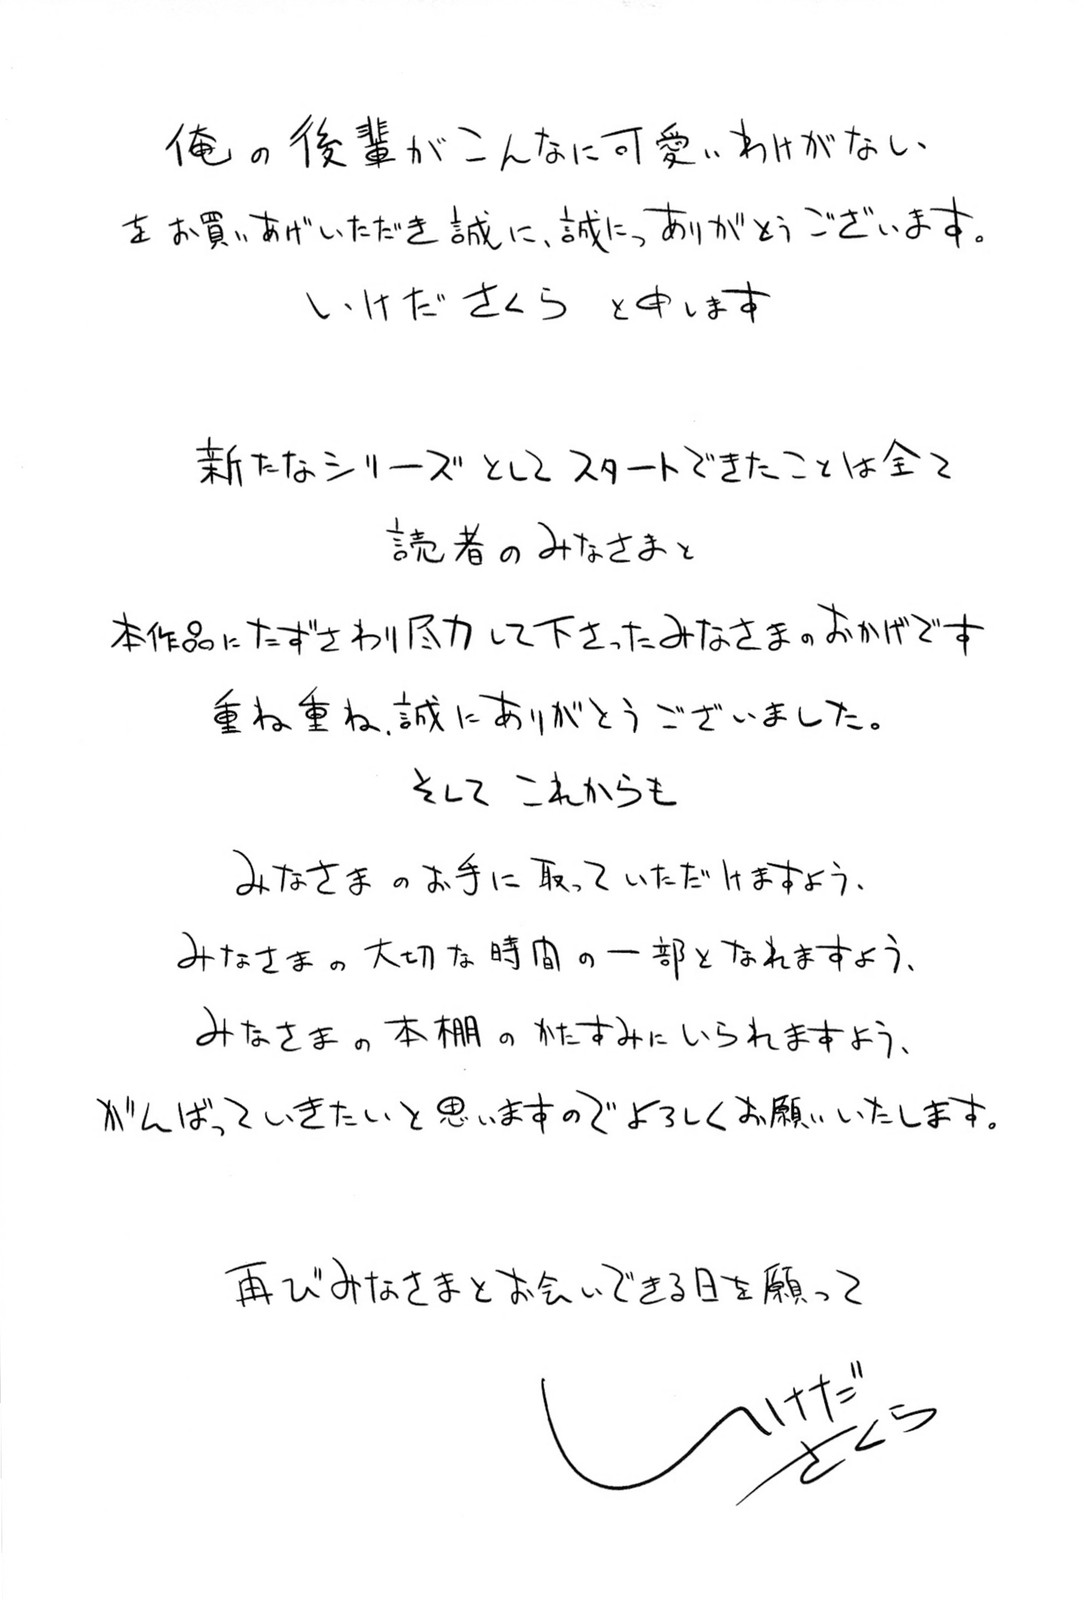 俺の後輩がこんなに可愛いわけがない
をお買いあげいただき誠に、誠にっありがとうございます。
いけださくら と申します
新たなシリーズとしてスタートできたことは全て
読者のみなさまと
本作品にたずさわり尽力して下さったみなさまのおかげです
重ね重ね、誠にありがとうございました。
そして これからも
みなさまのお手に取っていただけますよう、
みなさまの大切な時間の一部となれますよう、
みなさまの本棚のかたすみにいられますよう、
がんばっていきたいと思いますのでよろしくお願いいたします。
再びみなさまとお会いできる日を願って
いけだ
さくら